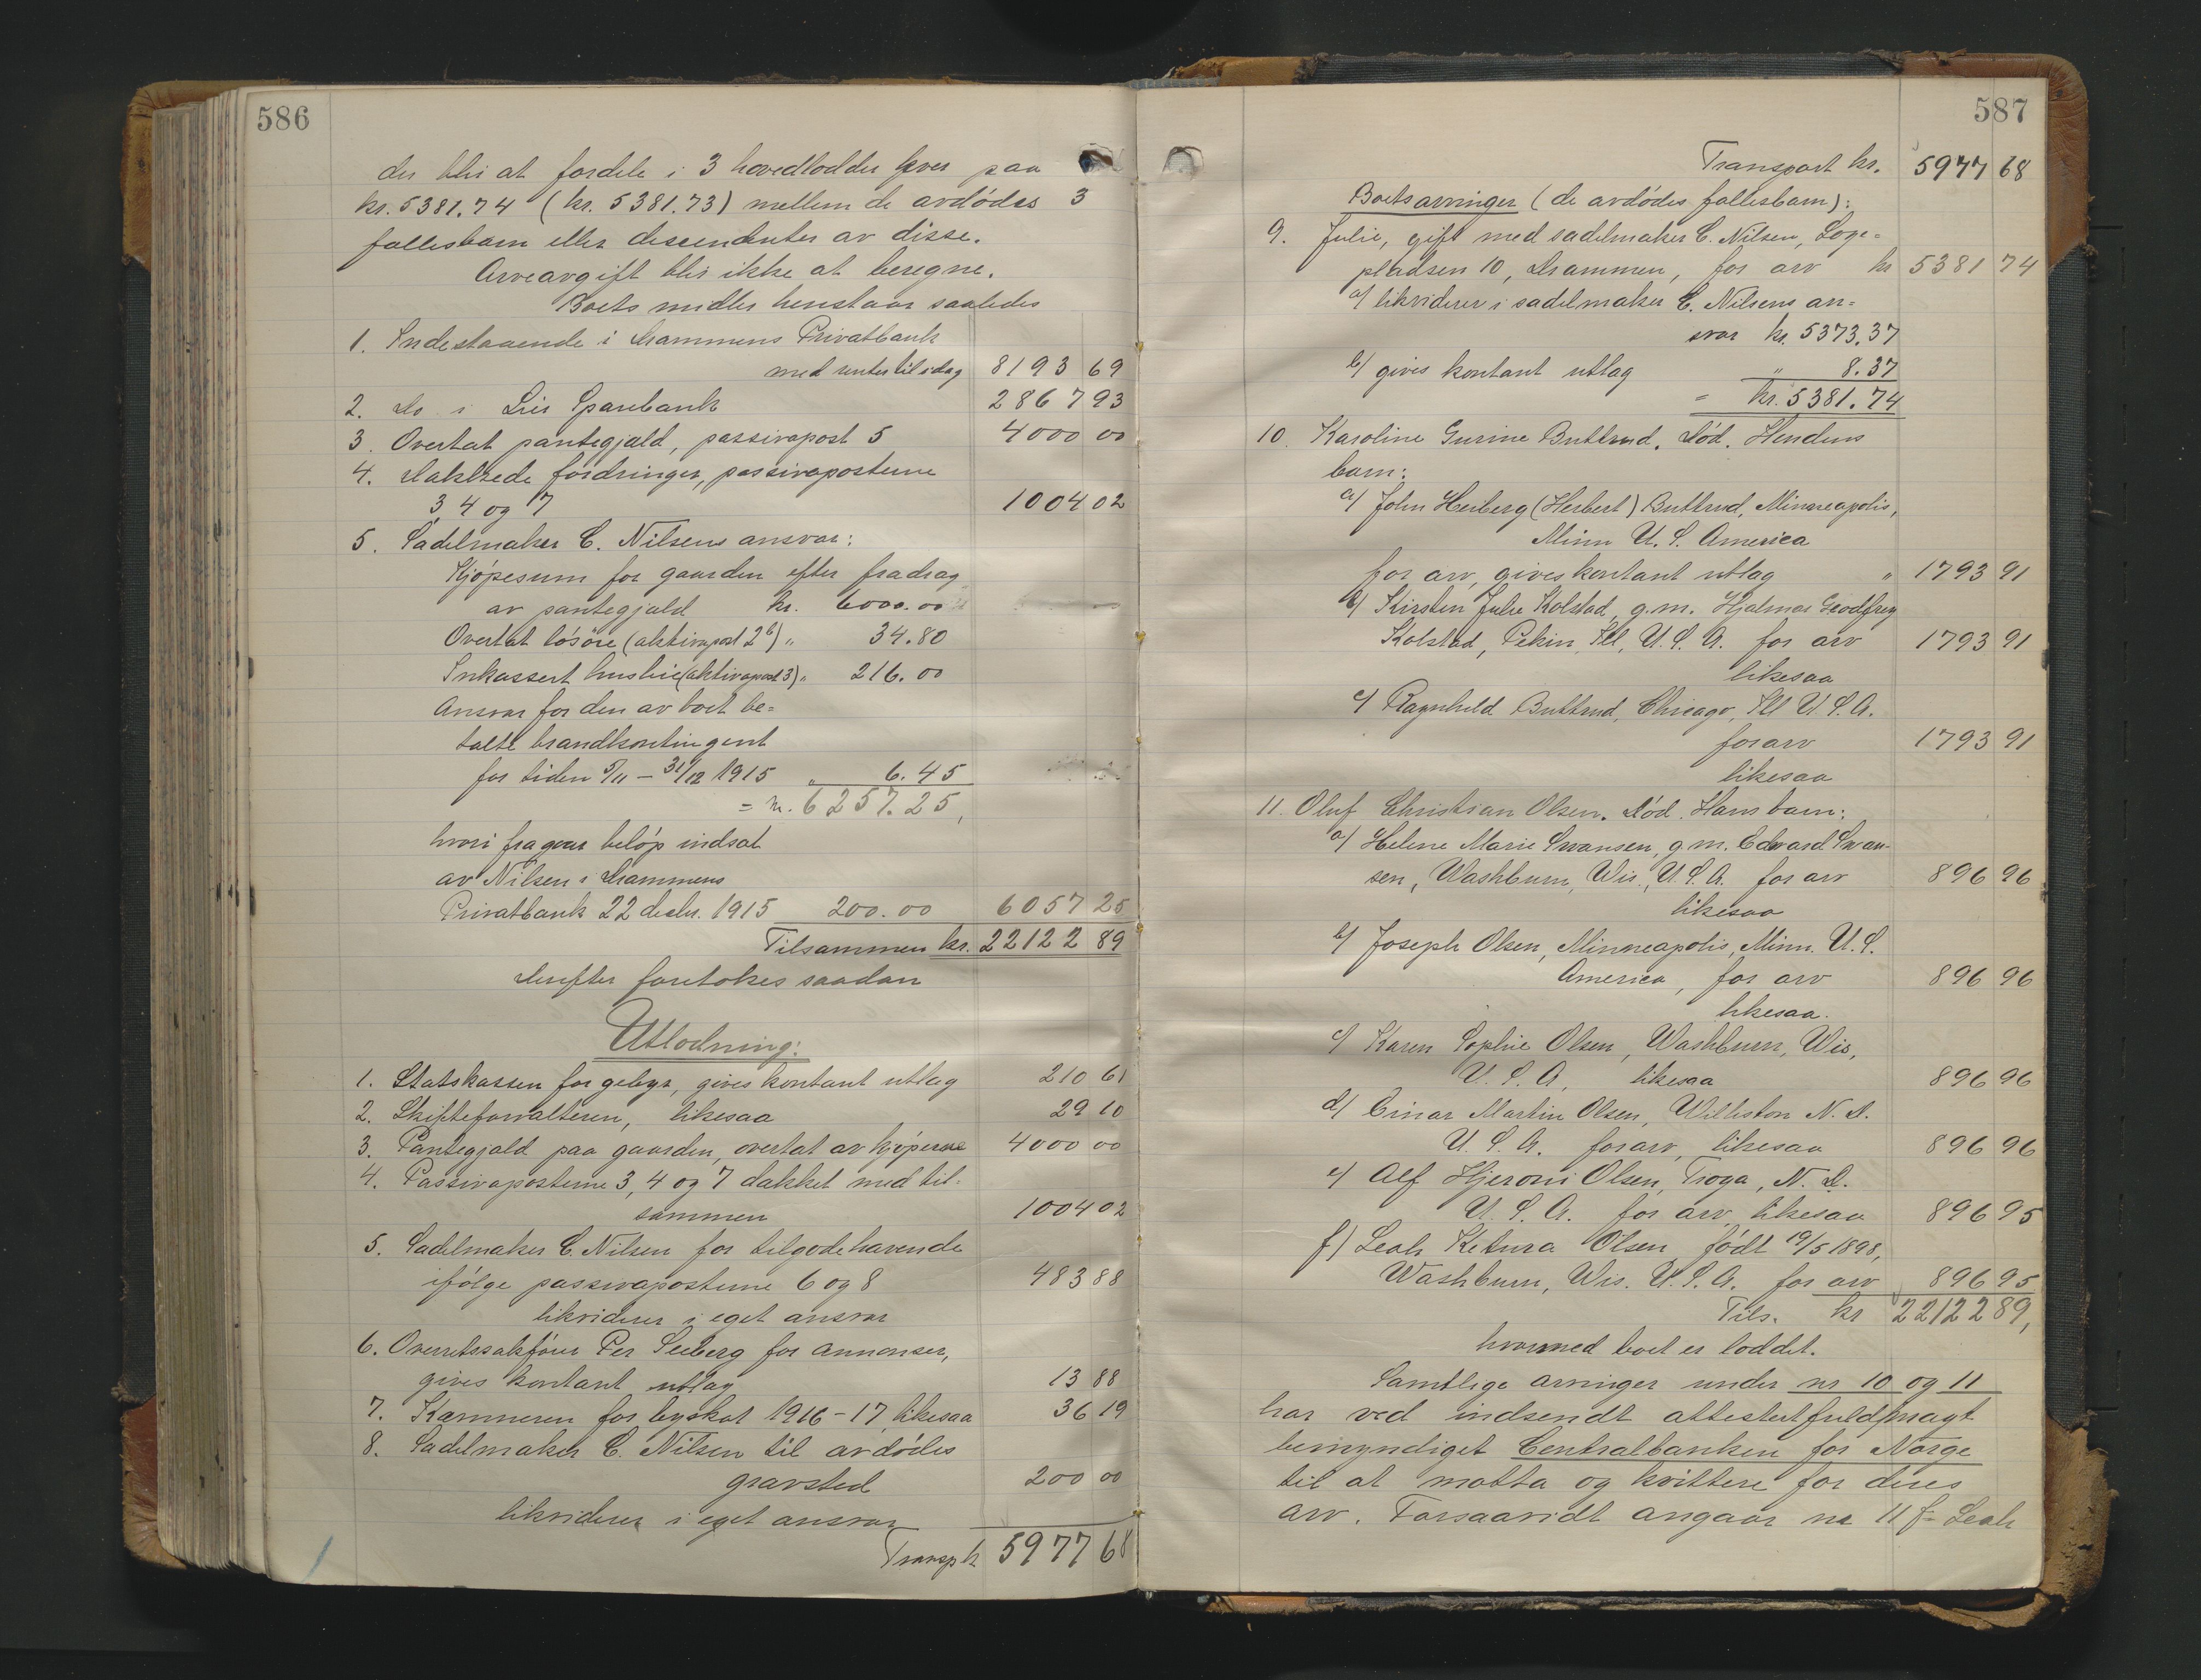 586
der blir at fordele i 3 hovedlodder hver paa
kr. 5381.74 (kr. 5381.73) mellem de avdødes 3
fællesbarn eller descendenter av disse.
Arveavgift blir ikke at beregne.
Boets midler henstaar saaledes
1. Indestaaende i Drammens Privatbank
med renter til idag 8193 69
2. Do i Lier Sparebank 2867 93
3. Overtat pantegjæld, passivapost 5 4000 00
4. Dækkede fordringer, passivaposterne
3 4 og 7 1004 02
5. Sadelmaker C. Nilsens ansvar:
Kjøpesum for gaarden efter fradrag
av pantegjæld kr. 6000.00
Overtat løsøre (aktivapost 2b) " 34.80
Inkassert husleie (aktivapost 3) " 216.00
Ansvar for den av boet be=
talte brandkontingent
for tiden 5/11 - 31/12 1915 " 6.45
= kr. 6257.25,
hvori fragaar beløp indsat
av Nilsen i Drammens
Privatbank 22 decbr. 1915 200.00 6057 25
Tilsammen kr. 22122 89
Derefter foretokes saadan
Utlodning:
1. Statskassen for gebyr, gives kontant utlæg 210 61
2. Skifteforvalteren, likesaa 29 10
3. Pantegjæld paa gaarden, overtat av kjøperne 4000 00
4. Passivaposterne 3, 4 og 7 dækket med til=
sammen 1004 02
5. Sadelmaker C. Nilsen for tilgodehavende
ifølge passivaposterne 6 og 8 483 88
likviderer i eget ansvar
6. Overretssakfører Per Seeberg for annonser,
gives kontant utlæg 13 88
7. Kæmneren for byskat 1916-17, likesaa 36 19
8. Sadelmaker C. Nilsen til avdødes
gravsted 200 00
likviderer i eget ansvar
Transp kr 5977 68
587
Transport kr. 5977 68
Boets arvinger (de avdødes fællesbarn):
9. Julie, gift med sadelmaker C. Nilsen, Loge=
pladsen 10, Drammen, for arv kr 5381 74
a/ likviderer i sadelmaker C. Nilsens an=
svar kr. 5373.37
b/ gives kontant utlæg " 8.37
= kr. 5381.74
10. Karoline Gurine Buttrud. Død. Hendes
barn:
a/ John Heiberg (Herbert) Buttrud, Minneapolis,
Minn U. S. America
for arv, gives kontant utlæg " 1793 91
b/ Kirsten Julie Kolstad, g.m. Hjalmar Geodfrey
Kolstad, Pekin, Ill, U. S. A. for arv 1793 91
likesaa
c/ Ragnhild Buttrud, Chicago, Ill U. S. A.
for arv 1793 91
likesaa
11. Oluf Christian Olsen. Død. Hans barn:
a/ Helene Marie Swansen, g.m. Edward Swan-
sen, Washburn, Wis., U. S. A. for arv 896 96
likesaa
b/ Joseph Olsen, Minneapolis, Minn. U. S.
America, for arv 896 96
likesaa.
c/ Karen Sophie Olsen, Washburn, Wis,
U. S. A, likesaa 896 96
d/ Einar Martin Olsen, Williston N. D.
U. S. A. for arv, likesaa 896 96
e/ Alf Hjeroni Olsen, Tioga, N. D.
U. S. A. for arv, likesaa 896 95
f) Leah Ketura Olsen født 19/5 1898,
Washburn, Wis. U. S. A. for arv 896 95
Tils. kr 22122 89,
hvormed boet er loddet.
Samtlige arvinger under nr 10 og 11
har ved indsendt attestert fuldmagt
bemyndiget Centralbanken for Norge
til at motta og kvittere for deres
arv. Forsaavidt angaar nr 11 f= Leah